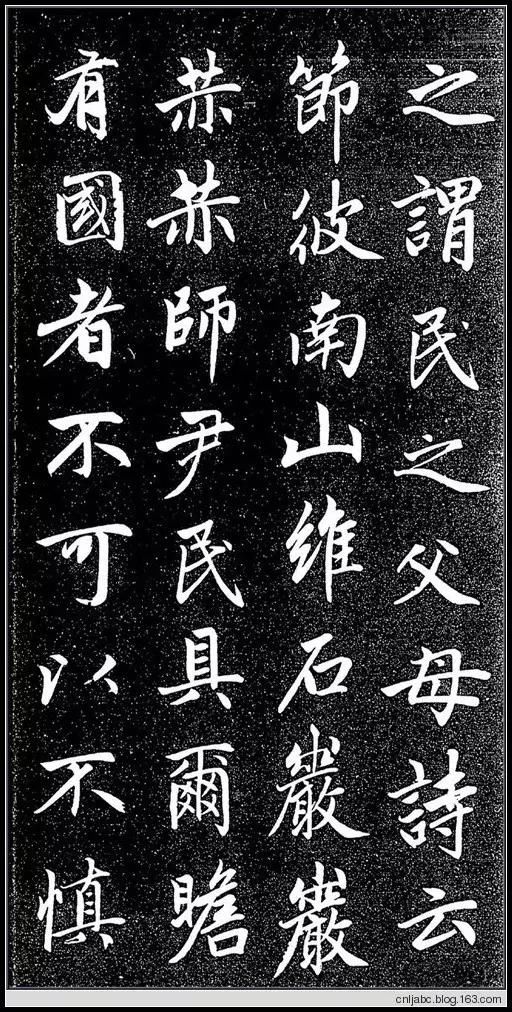 之謂民之父母詩云
節彼南山維石巖巖
赫赫師尹民具爾瞻
有國者不可以不慎
cnljabc.blog.163.com